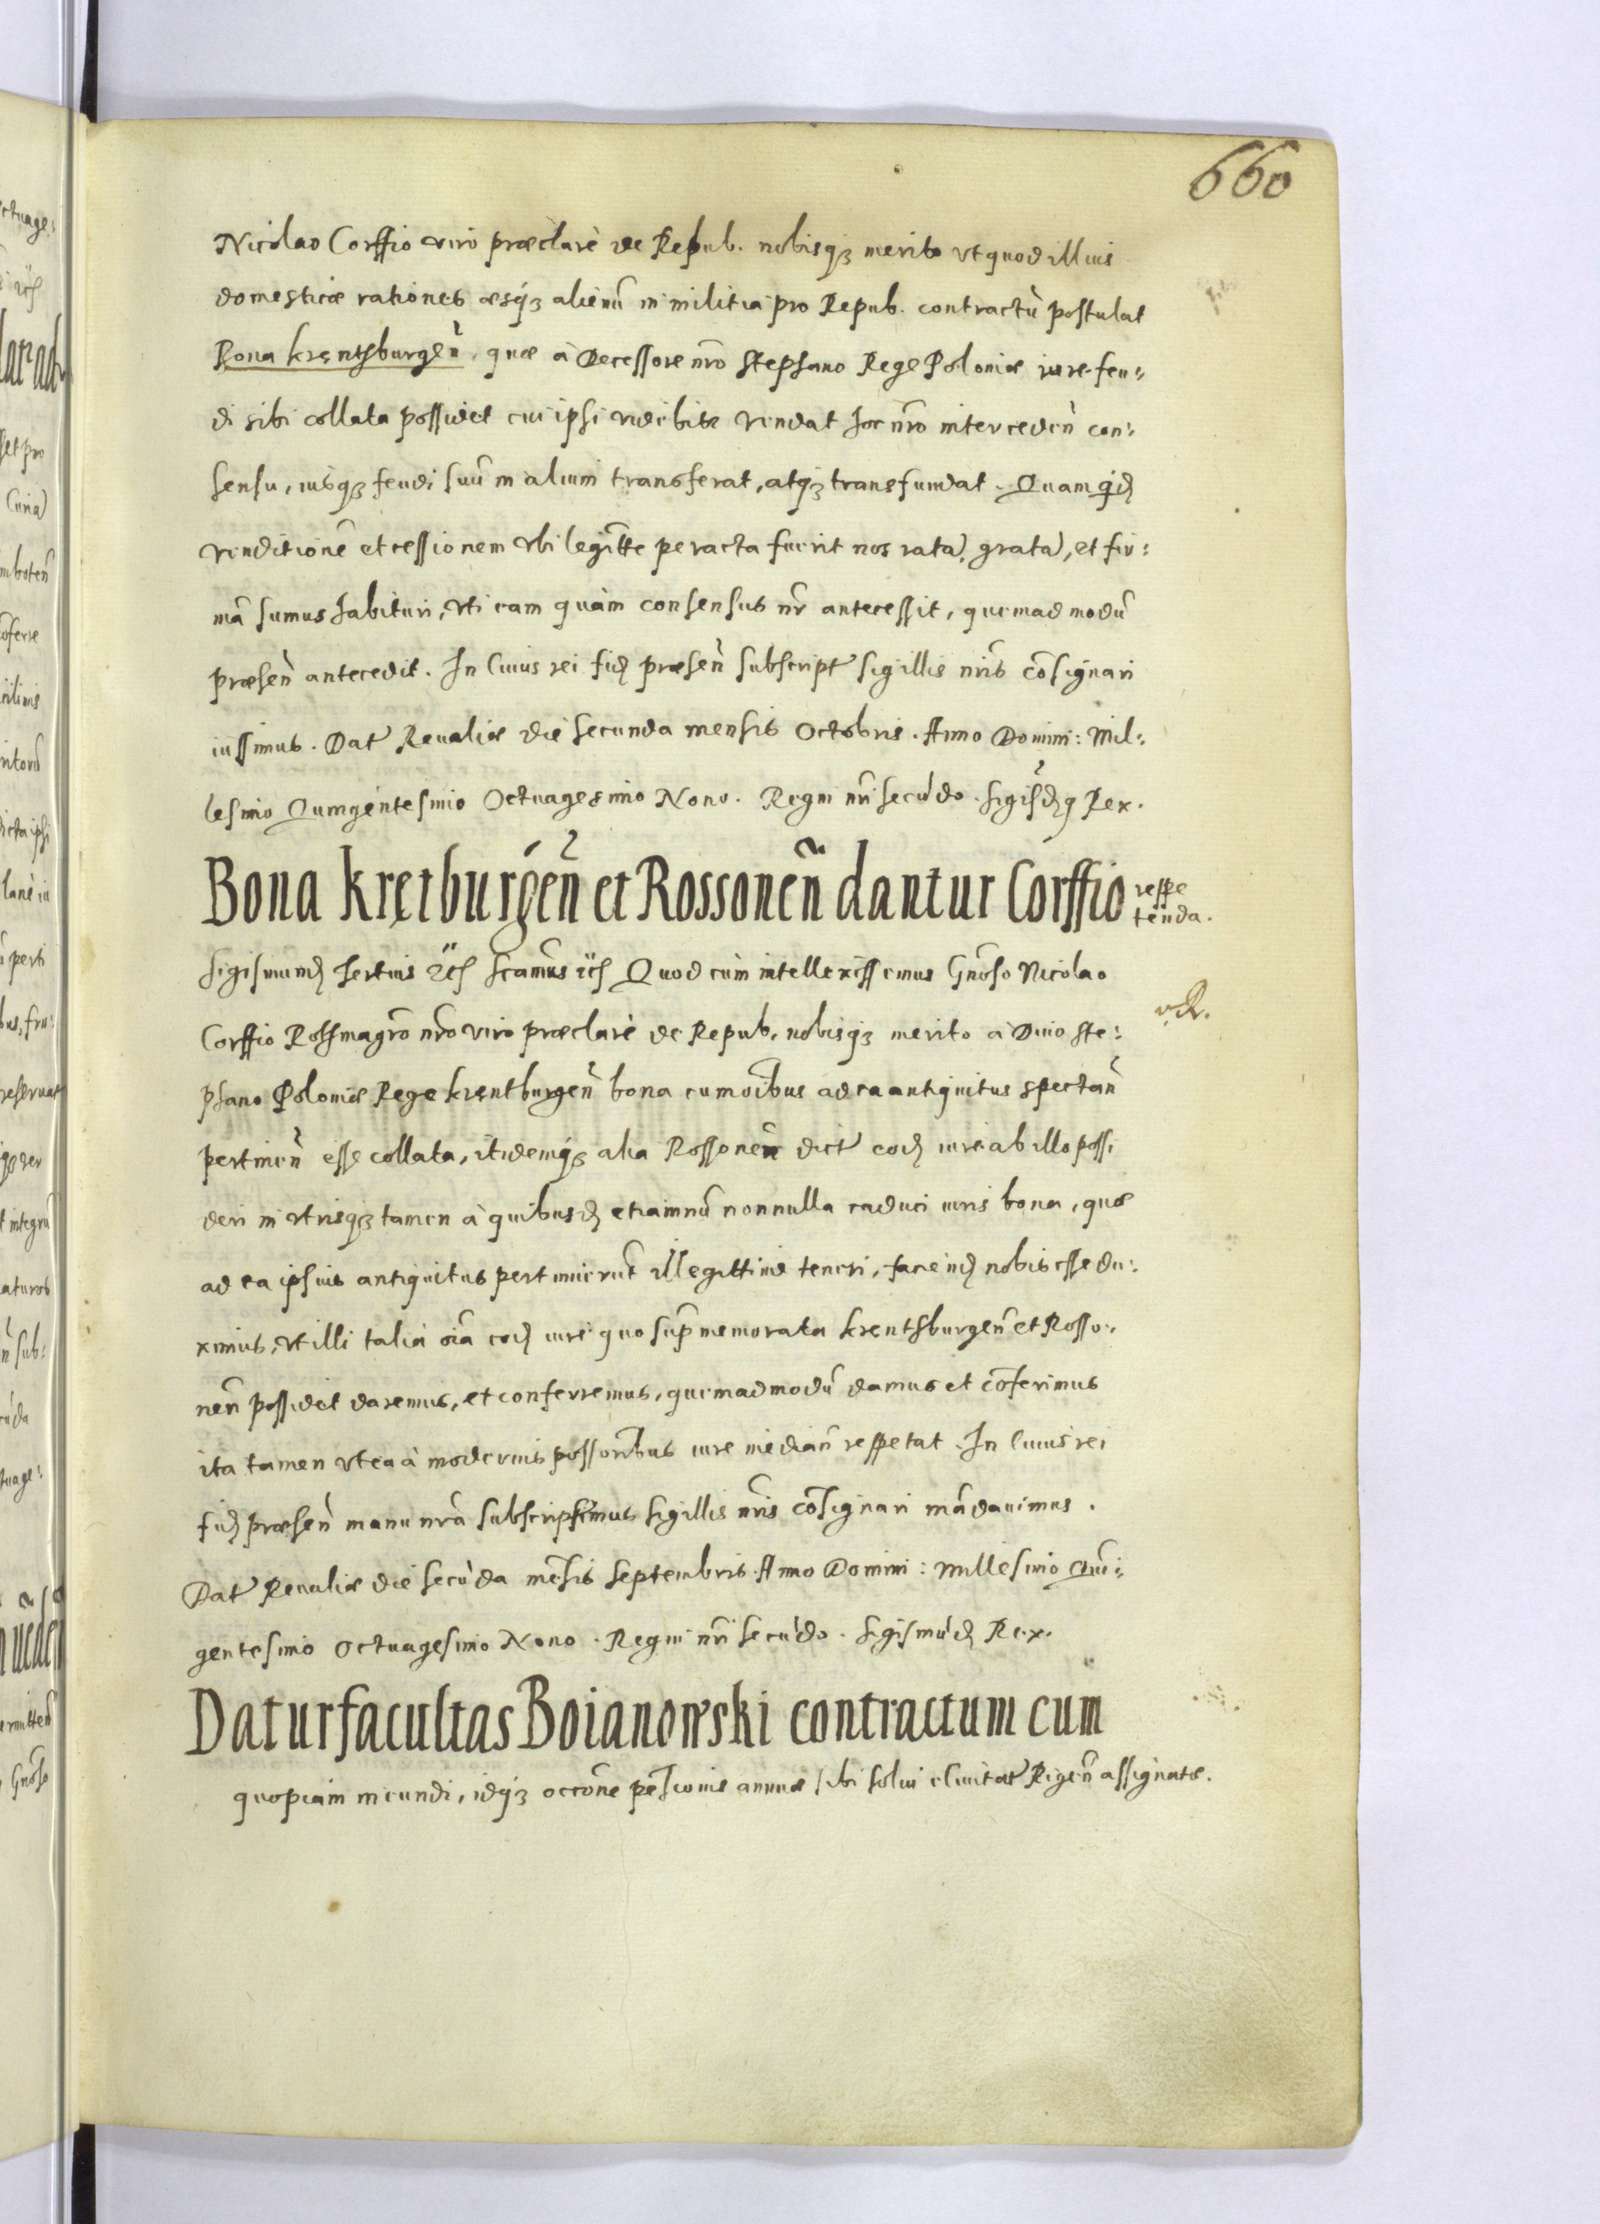 660
Nicolao Corffio viro præclarè de Repub. nobisqȝ merito vt quod illius
domesticæ rationes æsqȝ alienũ in militia pro Repub. contractũ postulat
Bona krẹntzburgeñ, quæ à Decessore nr̃o Stephano Rege Poloniæ iure feu:
di sibi collata possidet cui ipsi videbitʳ vendat hoc nr̃o intercedeñ con:
sensu, iusqȝ feudi suũ in alium transferat, atqȝ transfundat. Quam qid̃
venditionẽ et cessionem vbi legitt̃e peracta fuerit nos ratã, gratã, et fir:
mã sumus habituri, vti eam quàm consensus nr̃ antecessit, quemadmodũ
præseñ antecedit. In Cuius rei fid̃ præseñ subscript̃ sigillis nr̃is cõsignari
iussimus. Dat̃ Reualiæ die secunda mensis Octobris. Anno Domini: Mil:
lesimo Quingẽntesimo Octuagesimo Nono. Regni nr̃i secũdo. Sigis̃dꝰ Rex.
Bona kretburgeñ et Rossoneñ dantur Corffio reppe
tenda.
Sigismund̃ tertius etc̃ Sicam̃us etc̃ Quod cùm intellexissemus Gnõso Nicolao
Corffio Rothmagr̃o nr̃o viro præclarè de Repub. nobisqȝ merito à Diuo Ste:
phano Poloniæ Rege krẹntburgeñ bona cum oĩbus ad ea antiquitus spectañ
pertineñ esse collata, itidemqȝ alia Rossoneñ dict̃ eod̃ iure ab illo possi
deri in vtrisqȝ tamen à quibusd̃ etiamnũ nonnulla caduci iuris bona, quæ
ad ea ipsius antiquitus pertinuerũt illegittimè teneri, faciend̃ nobis esse du:
ximus, vt illi talia oĩa eod̃ iure quo sup̃memorata krentzburgeñ et Rosso:
neñ possidet daremus, et conferremus, quemadmodũ damus et cõferimus
ita tamen vt ea à modernis possor̃ibus iure mediañ reppetat. In Cuius rei
fid̃ præseñ manu nr̃a subscripsimus sigillis nr̃is cõsignari mãdauimus.
Dat̃ Reualiæ die secũda mẽsis Septembris Anno Domini: Millesimo Quin:
gentesimo Octuagesimo Nono. Regni nr̃i secũdo. Sigismũd̃ Rex.
Datur facultas Boianowski contractum cum
quopiam ineundi, idqȝ occõne pẽsionis annuæ sibi solui è Ciuitat̃ Rigeñ assignatæ.